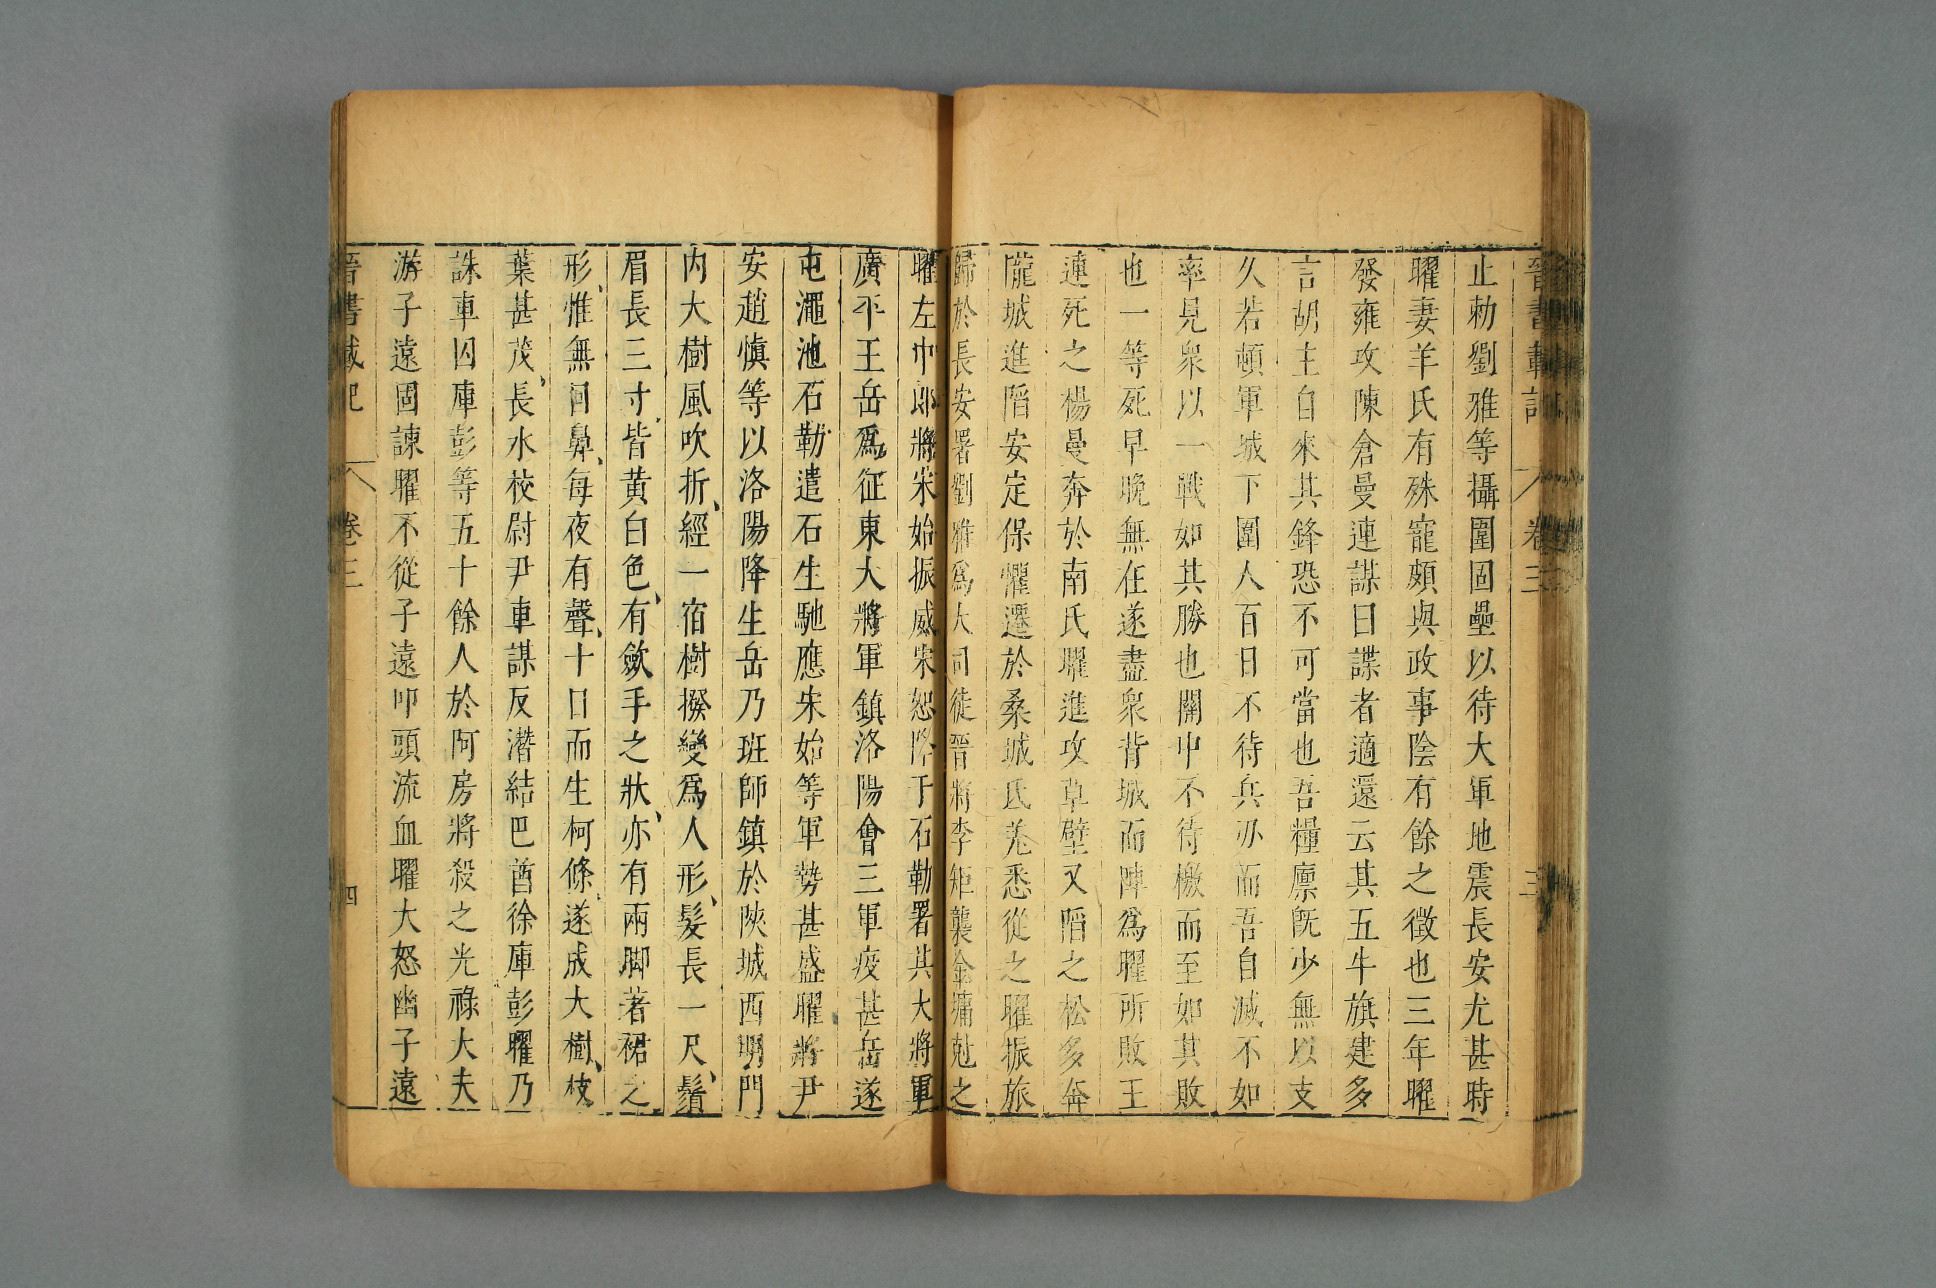 晉書載記 卷三 三
止勅劉雅等攝圍固壘以待大軍地震長安尤甚時
曜妻羊氏有殊寵頗與政事陰有餘之徵也三年曜
發雍攻陳倉曼連謀曰諜者適還云其五牛旗建多
言胡主自來其鋒恐不可當也吾糧廩旣少無以支
久若頓軍城下圍人百日不待兵刃而吾自滅不如
率見衆以一戰如其勝也關中不待檄而至如其敗
也一等死早晚無在遂盡衆背城而陣爲曜所敗王
連死之楊曼奔於南氏曜進攻草壁又陷之松多奔
隴城進陷安定保懼遷於桑城氐羌悉從之曜振旅
歸於長安署劉雅爲大司徒晉將李矩襲金墉尅之
曜左中郎將宋始振威宋恕降于石勒署其大將軍
廣平王岳爲征東大將軍鎮洛陽會三軍疫甚岳遂
屯澠池石勒遣石生馳應宋始等軍勢甚盛曜將尹
安趙愼等以洛陽降生岳乃班師鎮於陝城西明門
內大樹風吹折、經一宿樹撥變爲人形、髪長一尺、鬚
眉長三寸、皆黄白色、有斂手之狀、亦有兩脚著裙之
形、惟無目鼻、每夜有聲、十日而生柯條、遂成大樹、枝
葉甚茂、長水校尉尹車謀反潛結巴酋徐庫彭曜乃
誅車囚庫彭等五十餘人於阿房將殺之光祿大夫
游子遠固諫曜不從子遠叩頭流血曜大怒幽子遠
晉書載記 卷三 四